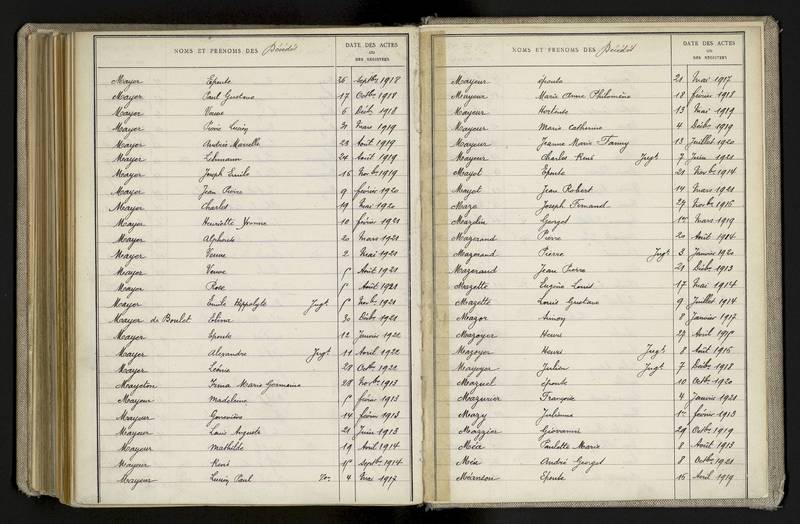 NOMS ET PRÉNOMS DES Décédés
DATE DES ACTES
OU
DES REGISTRES
Mayer Epouse 26 Septbre 1918
Mayer Paul Gustave 17 Octbre 1918
Mayer Veuve 6 Décbre 1918
Mayer Pierre Lucien 31 Mars 1919
Mayer Andrée Marcelle 23 Août 1919
Mayer Lehmann 24 Août 1919
Mayer Joseph Emile 15 Novbre 1919
Mayer Jean Pierre 9 février 1920
Mayer Charles 19 Mai 1920
Mayer Henriette Yvonne 10 février 1921
Mayer Alphonse 20 Mars 1921
Mayer Veuve 2 Mai 1921
Mayer Veuve Août 1921
Mayer Rose Août 1921
Mayer Emile Hippolyte Jugt Novbre 1921
Mayer de Boulet Elina 30 Décbre 1921
Mayer Epouse 12 Janvier 1922
Mayer Alexandre Jugt 11 Avril 1922
Mayer Léonie 28 Octbre 1922
Mayeton Irma Marie Germaine 28 Novbre 1913
Mayeur Madeleine février 1913
Mayeur Geneviève 14 février 1913
Mayeur Louis Auguste 21 Juin 1913
Mayeur Mathilde 19 Avril 1914
Mayeur René Septbre 1914
Mayeur Lucien Paul 4 Mai 1917
NOMS ET PRÉNOMS DES Décédés
DATE DES ACTES
OU
DES REGISTRES
Mayeur épouse 21 Mai 1917
Mayeur Marie Anne Philomène 18 février 1918
Mayeur Hortense 13 Mai 1919
Mayeur Marie Catherine 4 Décbre 1919
Mayeur Jeanne Marie Fanny 13 Juillet 1920
Mayeur Charles René Jugt 7 Juin 1921
Mayot Epouse 21 Novbre 1914
Mayot Jean Robert 14 Mars 1921
Maze Joseph Fernand 27 Novbre 1915
Mazelin Georges 1er Mars 1919
Mazerand Pierre 20 Août 1914
Mazerand Pierre Jugt 3 Janvier 1920
Mazerand Jean Pierre 21 Décbre 1913
Mazette Eugène Louis 17 Mai 1914
Mazette Louis Gustave 9 Juillet 1914
Mazor 8 Janvier 1917
Mazoyer Henri 27 Avril
Mazoyer Henri Jugt 8 Août 1916
Mazoyer Julien Jugt 7 Décbre 1918
Mazuel épouse 10 Octbre 1920
Mazurier Françoise 4 Janvier 1921
Mazy Julienne 1er février 1913
Mazzier Giovanni 29 Octbre 1919
Méa Paulette Marie 8 Août 1913
Méa André Georges 8 Octbre 1921
Méanson Epouse 15 Avril 1919